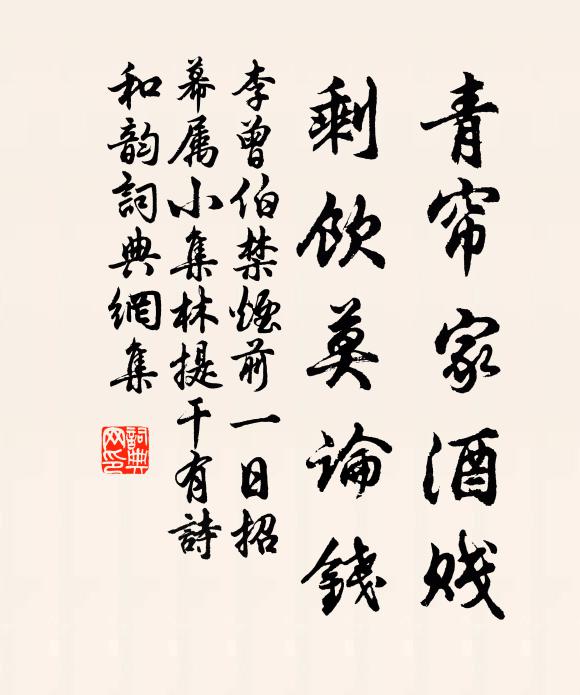 青帘家酒贱
剩饮莫论錢
李曾伯禁煙前一日招
幕属小集林提干有詩
和韵詞典網集
詞典网印